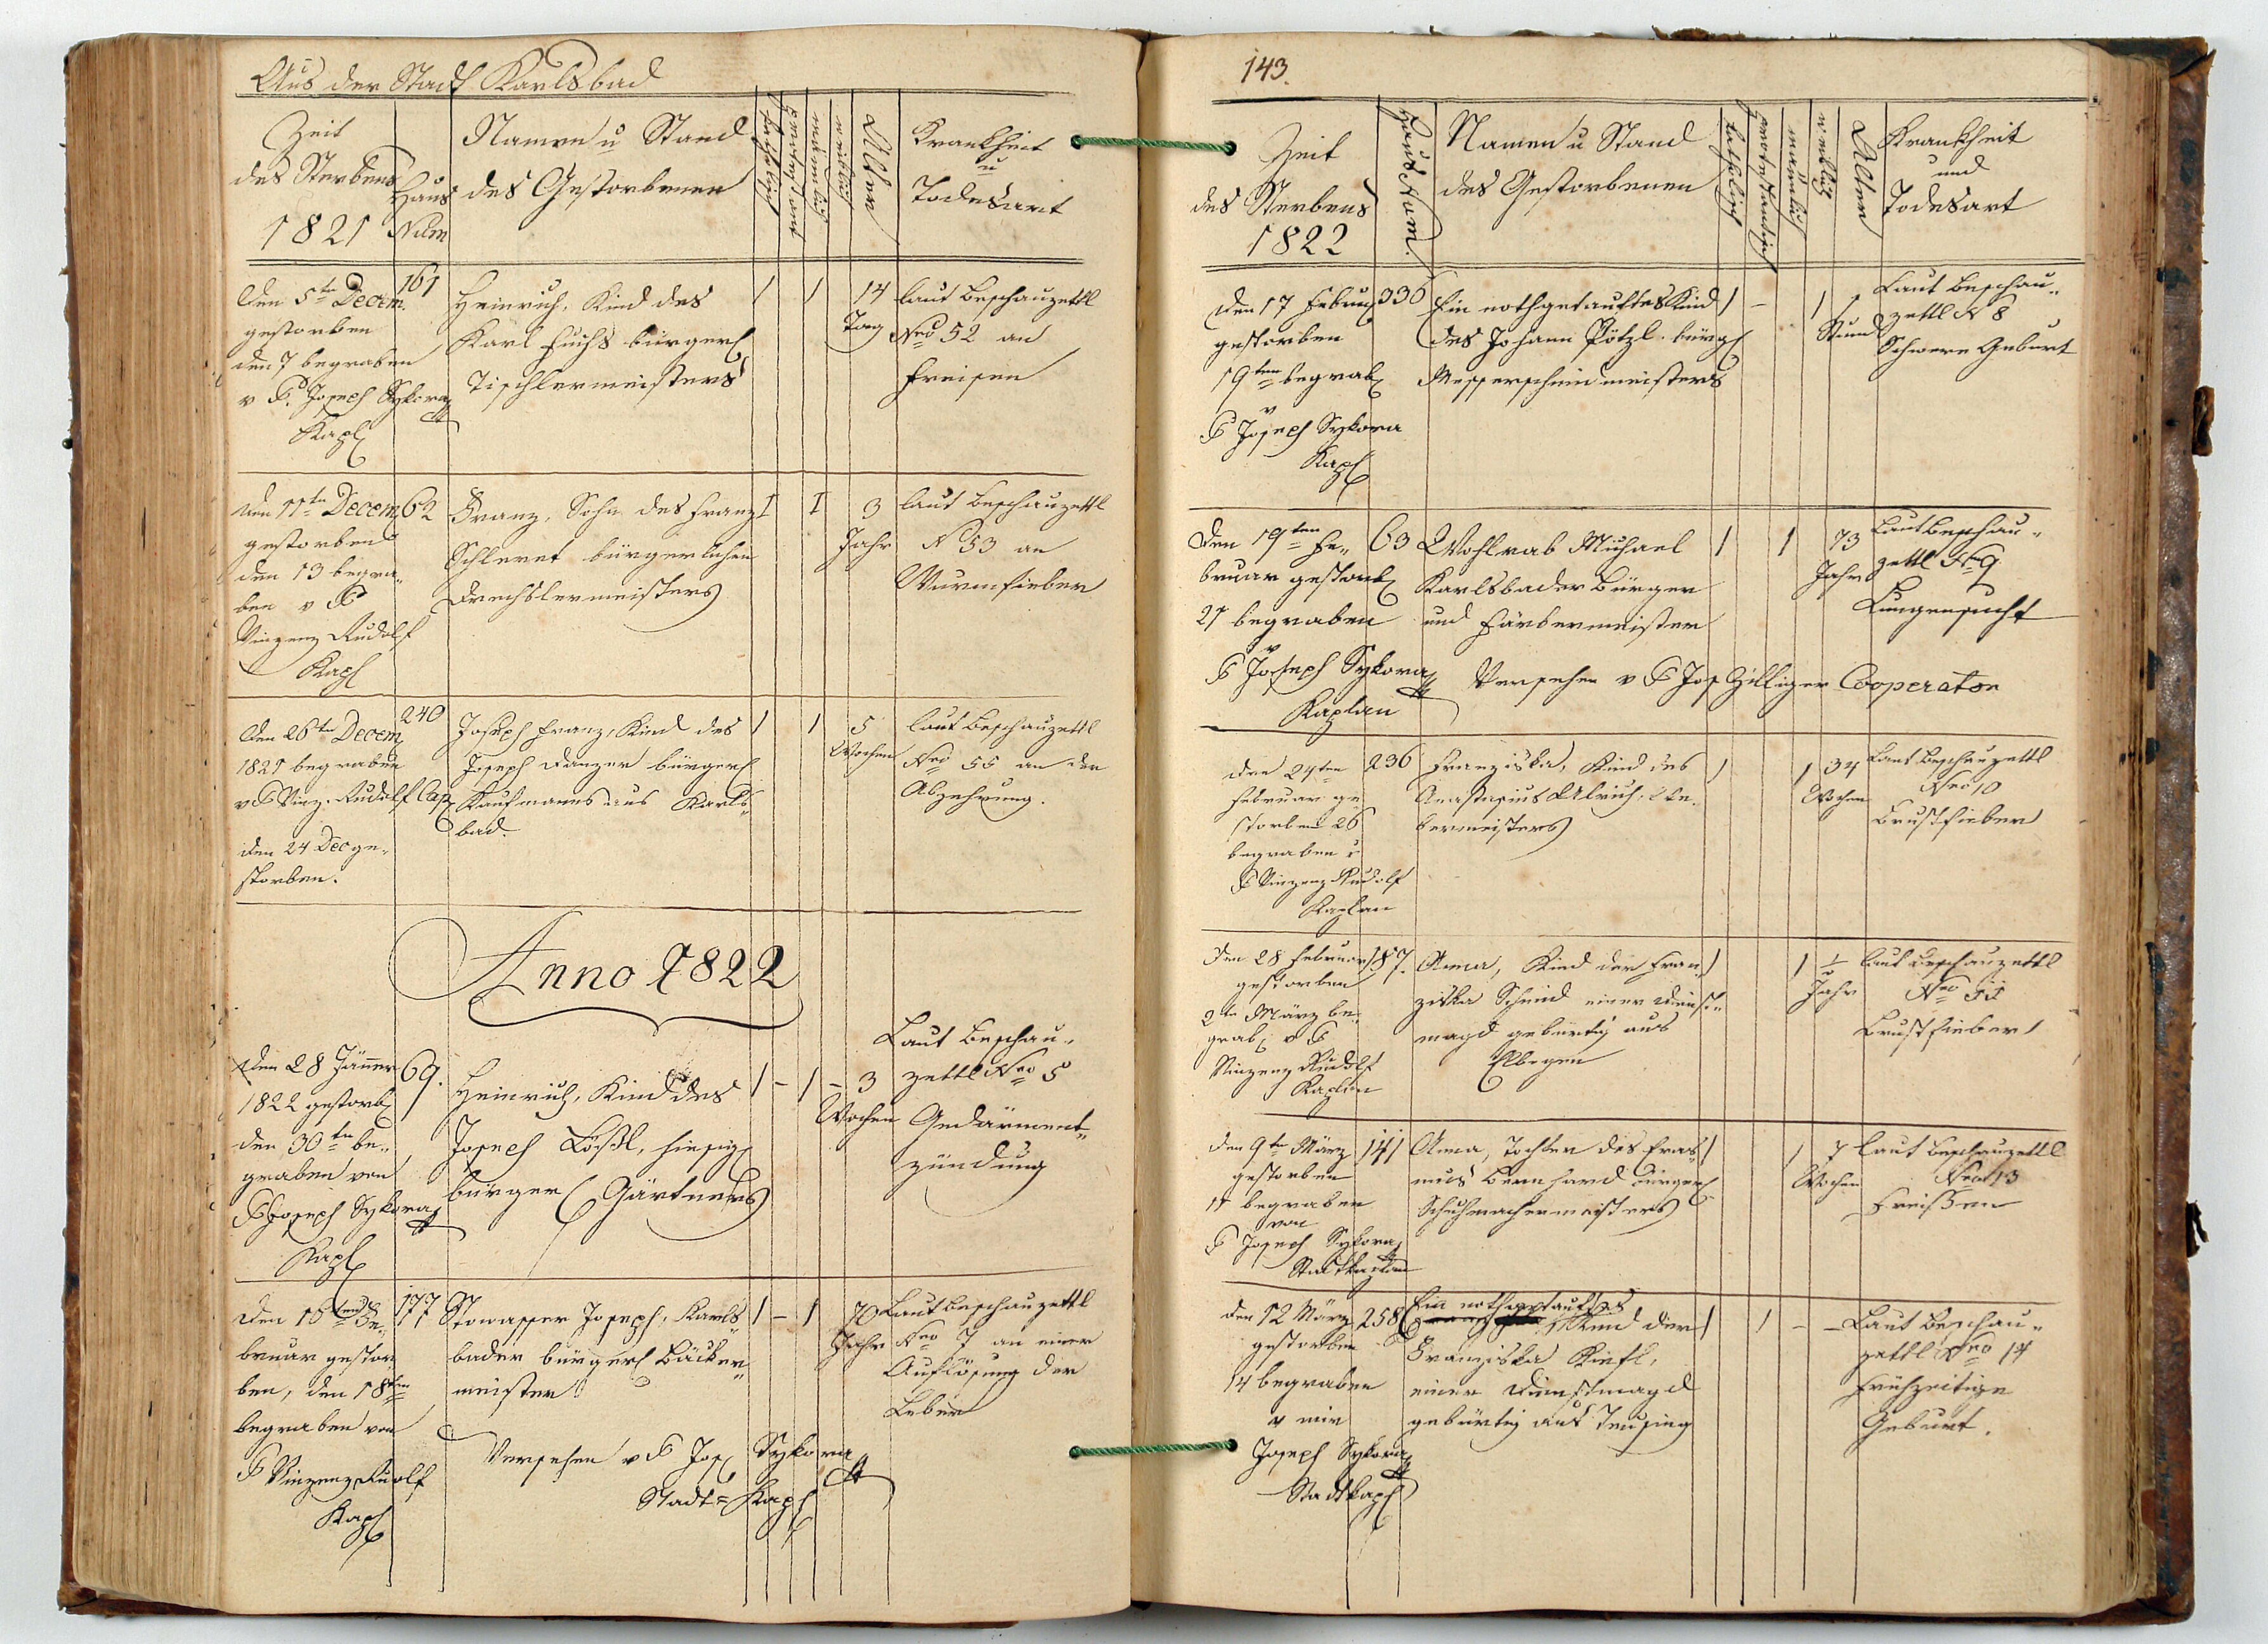 Aus der Stadt Karlsbad
Zeit
des Sterbens
1821
Haus
Num
Namen u Stand
des Gestorbenen
katholisch
protestant
männlich
weiblich
Alter
Krankheit
u
Todesart
Den 5te Decem.
gestorben
den 7 begraben
v P. Joseph Sykora
Kapl
161
Heinrich, Kind des
Karl Fuchs bürgerl
Tischlermeisters
1 1
14
Tag
laut Beschauzettl
Nro 52 an
Freisen
Den 11te Decem
gestorben
den 13 begra-
ben v P
Vinzenz Rudolf
Kapl
62
Franz, Sohn des Franz
bürgerlichen
Drechslermeisters
I I
3
Jahr
laut Beschauzettl
N 53 an
Wurmfieber
Den 26te Decem
1821 begraben
v P Vinz. Rudolf Cap
den 24 Dec ge-
storben.
240
Joseph Franz, Kind des
Joseph Danzer bürgerl
Kaufmanns aus Karls-
bad.
1 1
5
Wochen
laut Beschauzettl
Nro 55 an der
Abzehrung.
Anno 1822
Den 28 Jäner
1822 gestorb
den 30te be-
graben von
P Joseph Sykora
Kapl
69.
Heinrich, Kind des
Joseph Lößl, hiesig
bürgerl Gärtners
1 - 1 - 3
Wochen
Laut Beschau-
zettl Nro 5
Gedärment-
zündung
Den 16ten Fe-
bruar gestor
ben, den 18ten
begraben von
P Vinzenz Ruolf
Kapl
177
Stowasser Joseph, Karls-
bader bürgerl Bäcker-
meister
1 - 1
70
Jahr
Laut Beschauzettl
Nro 7 an einer
Auflösung der
Leber
Versehen v P Jos Sykora
Stadt-Kapl
143.
Zeit
des Sterbens
1822
Haus Num.
Namen u Stand
des Gestorbenen
katholisch
protestantisch
männlich
weiblich
Alter
Krankheit
und
Todesart
Den 17 Februar
gestorben
19ten begrab
v
P Joseph Sykora
Kapl
336
Ein nothgetauftes Kind
des Johann Pötzl bürgl
Messerschmidmeisters
1 -
1 1
Stund
Laut Beschau-
zettl N 8
Schwere Geburt
Den 19ten Fe-
bruar gestorb
21 begraben
v
P Joseph Sykora
Kaplan
63
Wohlrab Michael
Karlsbader Bürger
und Färbermeister
1 1
73
Jahr
Laut Beschau-
zettl Nro 9
Lungensucht
Versehen v P Jos Zilliger Cooperator
den 24ten
Februar ge
storben 26
begraben v
P Vinzenz Rudolf
Kaplan
236
Franziska, Kind des
Anastasius Ulrich,
bermeisters
1 1
34
Wochen
Laut Beschauzettl
Nro 10
Brustfieber
Den 28 Februar
gestorben
2te März be-
grab v P
Vinzenz Rudolf
Kaplan
187.
Anna, Kind der Fran-
ziska Schmid einer Dienst-
magd gebürtig aus
Elbogen
1 1
Jahr
laut Beschauzettl
Nro 11
Brustfieber
den 9te März
gestorben
11 begraben
von
P Joseph Sykora
Stadtkaplan
141
Anna, Tochter des Eras-
mus Bernhard bürgerl
Schuhmachermeisters
1 1
7
Wochen
laut Beschauzettl
Nro 13
Freißen
den 12 März
gestorben
14 begraben
v mir
Joseph Sykora
Stadtkapl
258
Ein nothgetauftes
Kind der
Franziska Kiesl,
einer Dienstmagd
gebürtig aus Teusing
1 1 - -
Laut Beschau-
zettl Nro 14
Frühzeitige
Geburt.